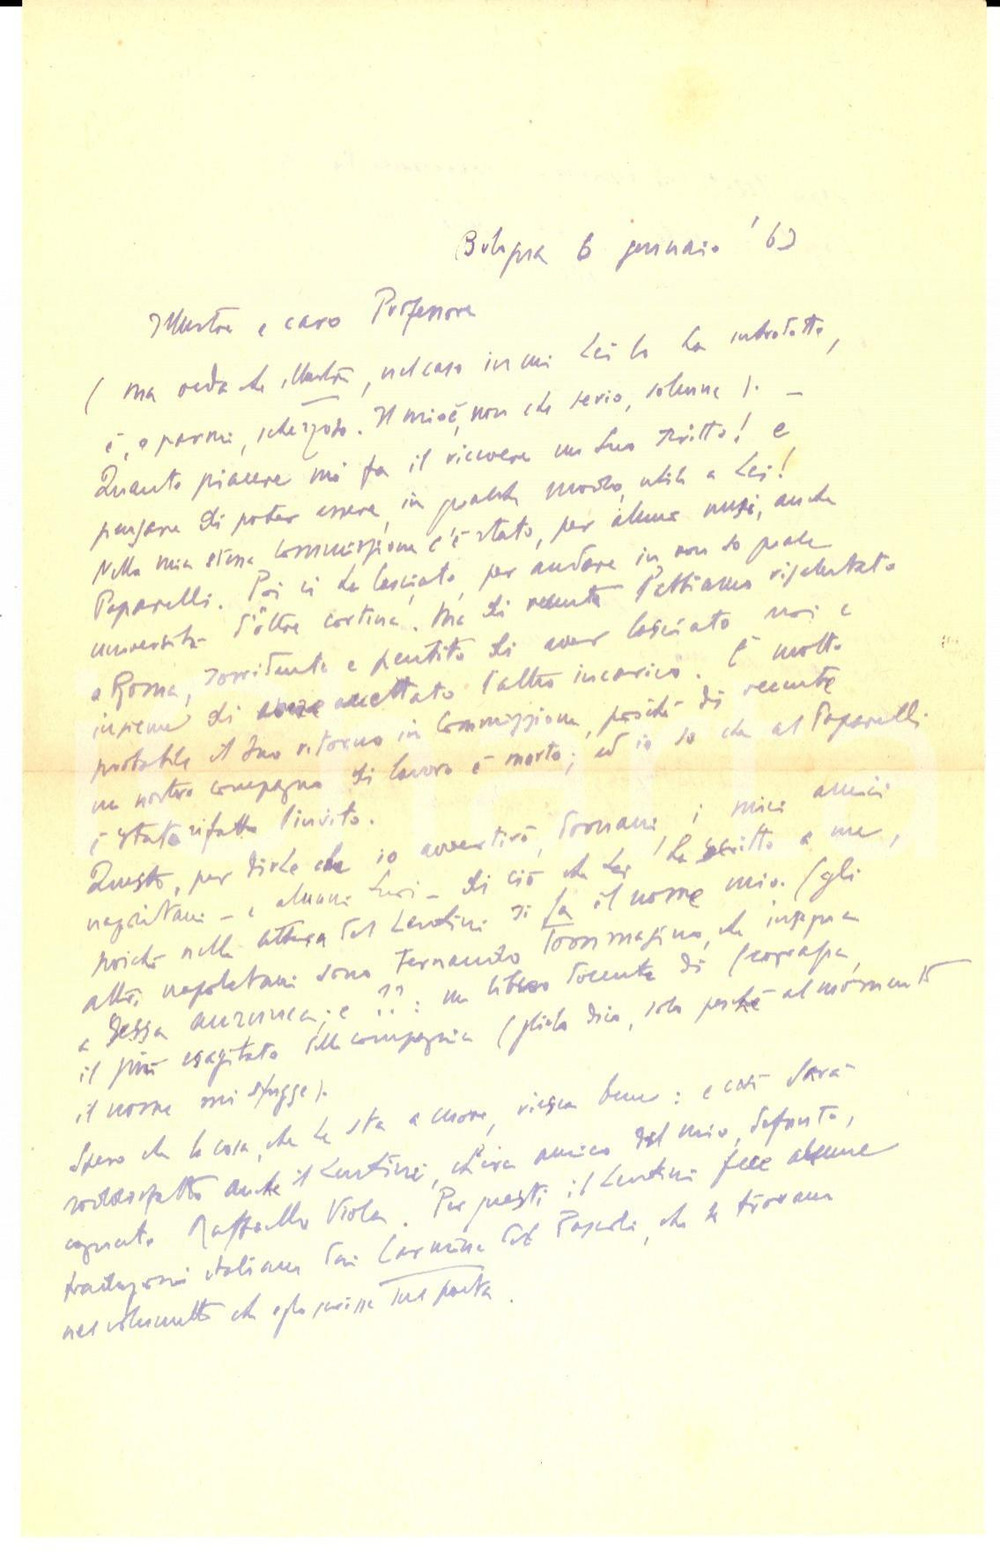 Bologna 6 gennaio '63
Illustre e caro Professore
( ma veda che illustre, nel caso in cui Lei lo ha introdotto,
è, o parmi, scherzoso. Il mio è, non che serio, solenne ). —
Quanto piacere mi fa il ricevere un Suo scritto! e
pensare di poter essere, in qualche modo, utile a Lei!
Nella mia stessa Commissione c'è stato, per alcuni mesi, anche
Paparelli. Poi ci ha lasciato, per andare in non so quale
università d'oltre cortina. Ma di recente l'abbiamo risalutato
a Roma, sorridente e pentito di aver lasciato noi e
insieme di accettato l'altro incarico. È molto
probabile il Suo ritorno in Commissione, poiché di recente
un nostro compagno di lavoro è morto; ed io so che al Paparelli
è stato rifatto l'invito.
Questo, per dirLe che io avvertirò, domani, i miei amici
napoletani – e alcuni Suoi – di ciò che Lei ha scritto a me,
poiché nella lettera del Lentini si fa il nome mio. (gli
altri napoletani sono Fernando Tommasino, che insegna
a Sessa Aurunca; e ??: un libero docente di Geografia,
il più esagitato della compagnia (glielo dico, solo perché al momento
il nome mi sfugge).
Spero che la cosa, che Le sta a cuore, riesca bene: e così sarà
soddisfatto anche il Lentini, ch'era amico del mio, defunto,
cognato Raffaello Viola. Per questi il Lentini fece alcune
traduzioni italiane dai Carmina del Pascoli, che si trovano
nel volumetto che egli scrisse sul poeta.